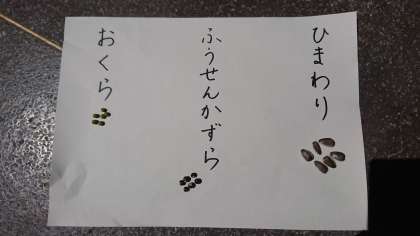 ひまわり
ふうせんかずら
おくら